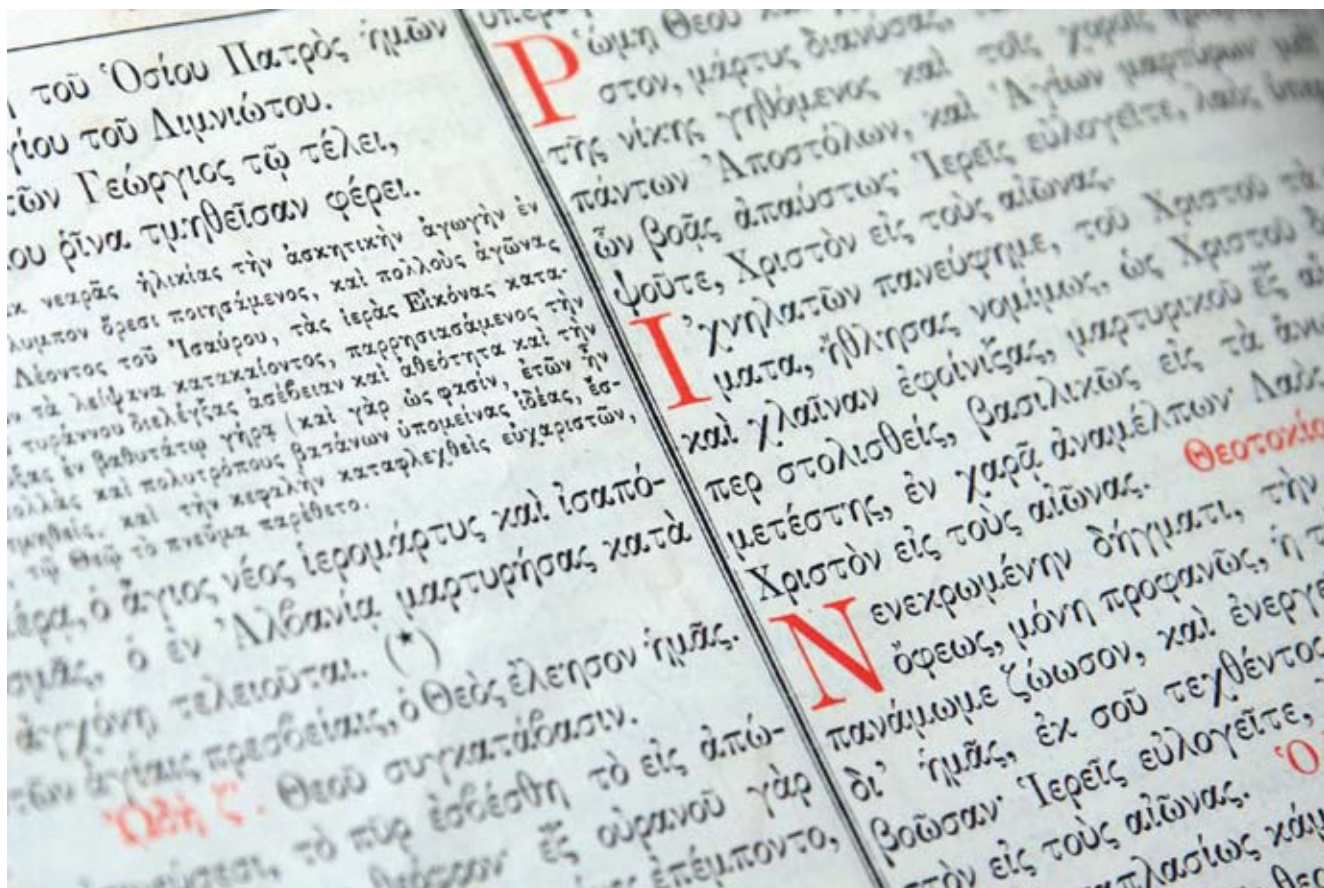 τοῦ Ὁσίου Πατρὸς ἡμῶν
γίου τοῦ Λιμνιώτου.
τῶν Γεώργιος τῷ τέλει,
ου ῥῖνα τμηθεῖσαν φέρει.
κ νεαρᾶς ἡλικίας τὴν ἀσκητικὴν ἀγωγὴν ἐν
λυμπον ὄρεσι ποιησάμενος, καὶ πολλοὺς ἀγῶνας
Λέοντος τοῦ Ἰσαύρου, τὰς ἱερὰς Εἰκόνας κατα-
ν τὰ λείψανα κατακαίοντος, παρρησιασάμενος τὴν
τυράννου διελέγξας ἀσέβειαν καὶ ἀθεότητα καὶ τὴν
ξας ἐν βαθυτάτῳ γήρᾳ (καὶ γὰρ ὥς φασίν, ἐτῶν ἦν
ολλὰς καὶ πολυτρόπους βασάνων ὑπομείνας ἰδέας, ἔσ-
τμηθείς, καὶ τὴν κεφαλὴν καταφλεχθεὶς εὐχαριστῶν,
τῷ Θεῷ τὸ πνεῦμα παρέθετο.
έρᾳ, ὁ ἅγιος νέος ἱερομάρτυς καὶ ἰσαπό-
σμᾶς, ὁ ἐν Ἀλβανίᾳ μαρτυρήσας κατὰ
ἀγχόνῃ τελειοῦται. (*)
τῶν ἁγίαις πρεσβείαις, ὁ Θεὸς ἐλέησον ἡμᾶς.
ᾨδὴ ζ΄. Θεοῦ συγκατάβασιν.
τὸ πῦρ ἐσβέσθη τὸ εἰς ἀπώ-
ἐξ οὐρανοῦ γὰρ
ἐπέμποντο,
Ῥώμῃ Θεοῦ
στον, μάρτυς διανύσας,
τῆς νίκης γηθόμενος καὶ τοῖς χοροῖς
πάντων Ἀποστόλων, καὶ Ἁγίων μαρτύρων μεθ'
ὧν βοᾷς ἀπαύστως· Ἱερεῖς εὐλογεῖτε, λαὸς ὑπερ
ψοῦτε, Χριστὸν εἰς τοὺς αἰῶνας.
Ἰχνηλατῶν πανεύφημε, τοῦ Χριστοῦ τὰ
ματα, ἤθλησας νομίμως, ὡς Χριστοῦ
καὶ χλαῖναν ἐφοίνιξας, μαρτυρικοῦ ἐξ αἵ
περ στολισθείς, βασιλικῶς εἰς τὰ ἄνω
μετέστης, ἐν χαρᾷ ἀναμέλπων· Λαὸς
Χριστὸν εἰς τοὺς αἰῶνας. Θεοτοκίο
Νενεκρωμένην δήγματι, τὴν
ὄφεως, μόνη προφανῶς, ἡ τ
πανάμωμε ζώωσον, καὶ ἐνεργε
δι' ἡμᾶς, ἐκ σοῦ τεχθέντος
βοῶσαν· Ἱερεῖς εὐλογεῖτε,
τὸν εἰς τοὺς αἰῶνας. Ὁ
πλασίως κάμ